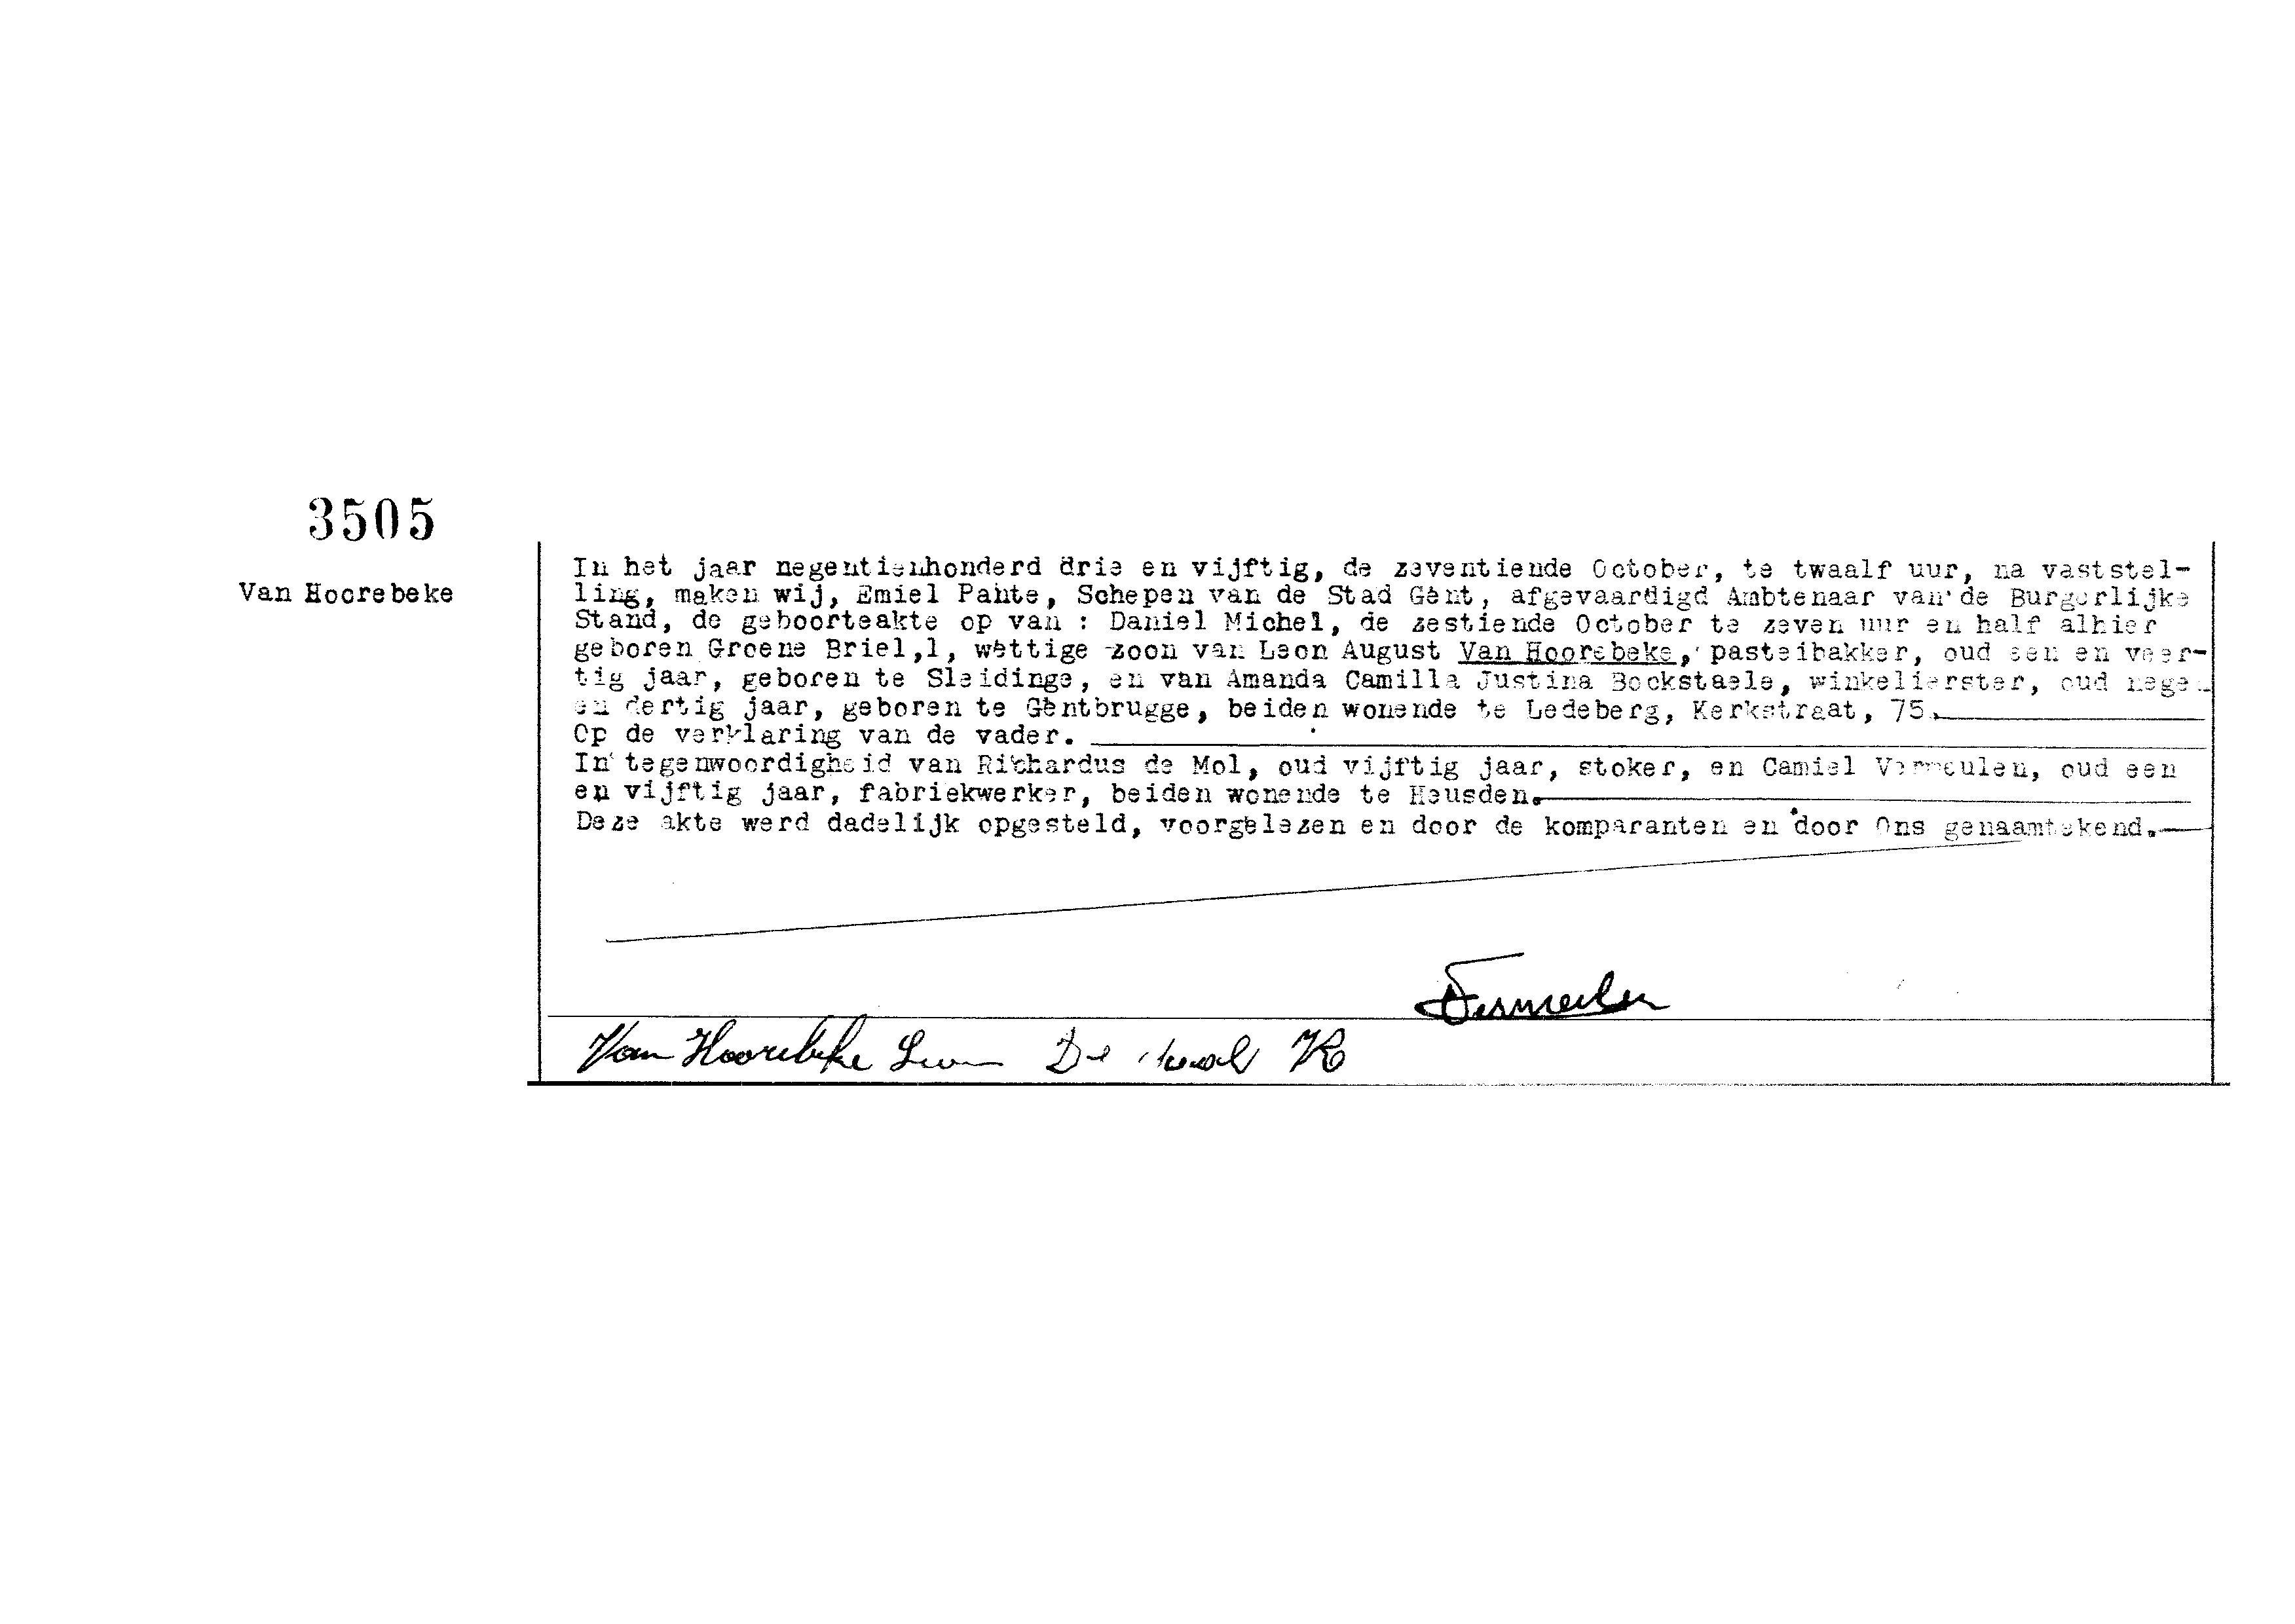 3505
Van Hoorebeke
In het jaar negentienhonderd drie en vijftig, de zeventiende October, te twaalf uur, na vaststel-
ling, maken wij, Emiel Pahte, Schepen van de Stad Gent, afgevaardigd Ambtenaar van de Burgerlijke
Stand, de geboorteakte op van : Daniel Michel, de zestiende October te zeven uur en half alhier
geboren Groene Briel,1, wettige zoon van Leon August Van Hoorebeke, pasteibakker, oud een en veer-
tig jaar, geboren te Sleidinge, en van Amanda Camilla Justina Bockstaele, winkelierster, oud negen
en dertig jaar, geboren te Gentbrugge, beiden wonende te Ledeberg, Kerkstraat, 75.
Op de verklaring van de vader.
In tegenwoordigheid van Richardus de Mol, oud vijftig jaar, stoker, en Camiel Vermeulen, oud een
en vijftig jaar, fabriekwerker, beiden wonende te Heusden.
Deze akte werd dadelijk opgesteld, voorgelezen en door de komparanten en door Ons genaamtekend.
Vermeulen
Van Hoorebeke Leon De R